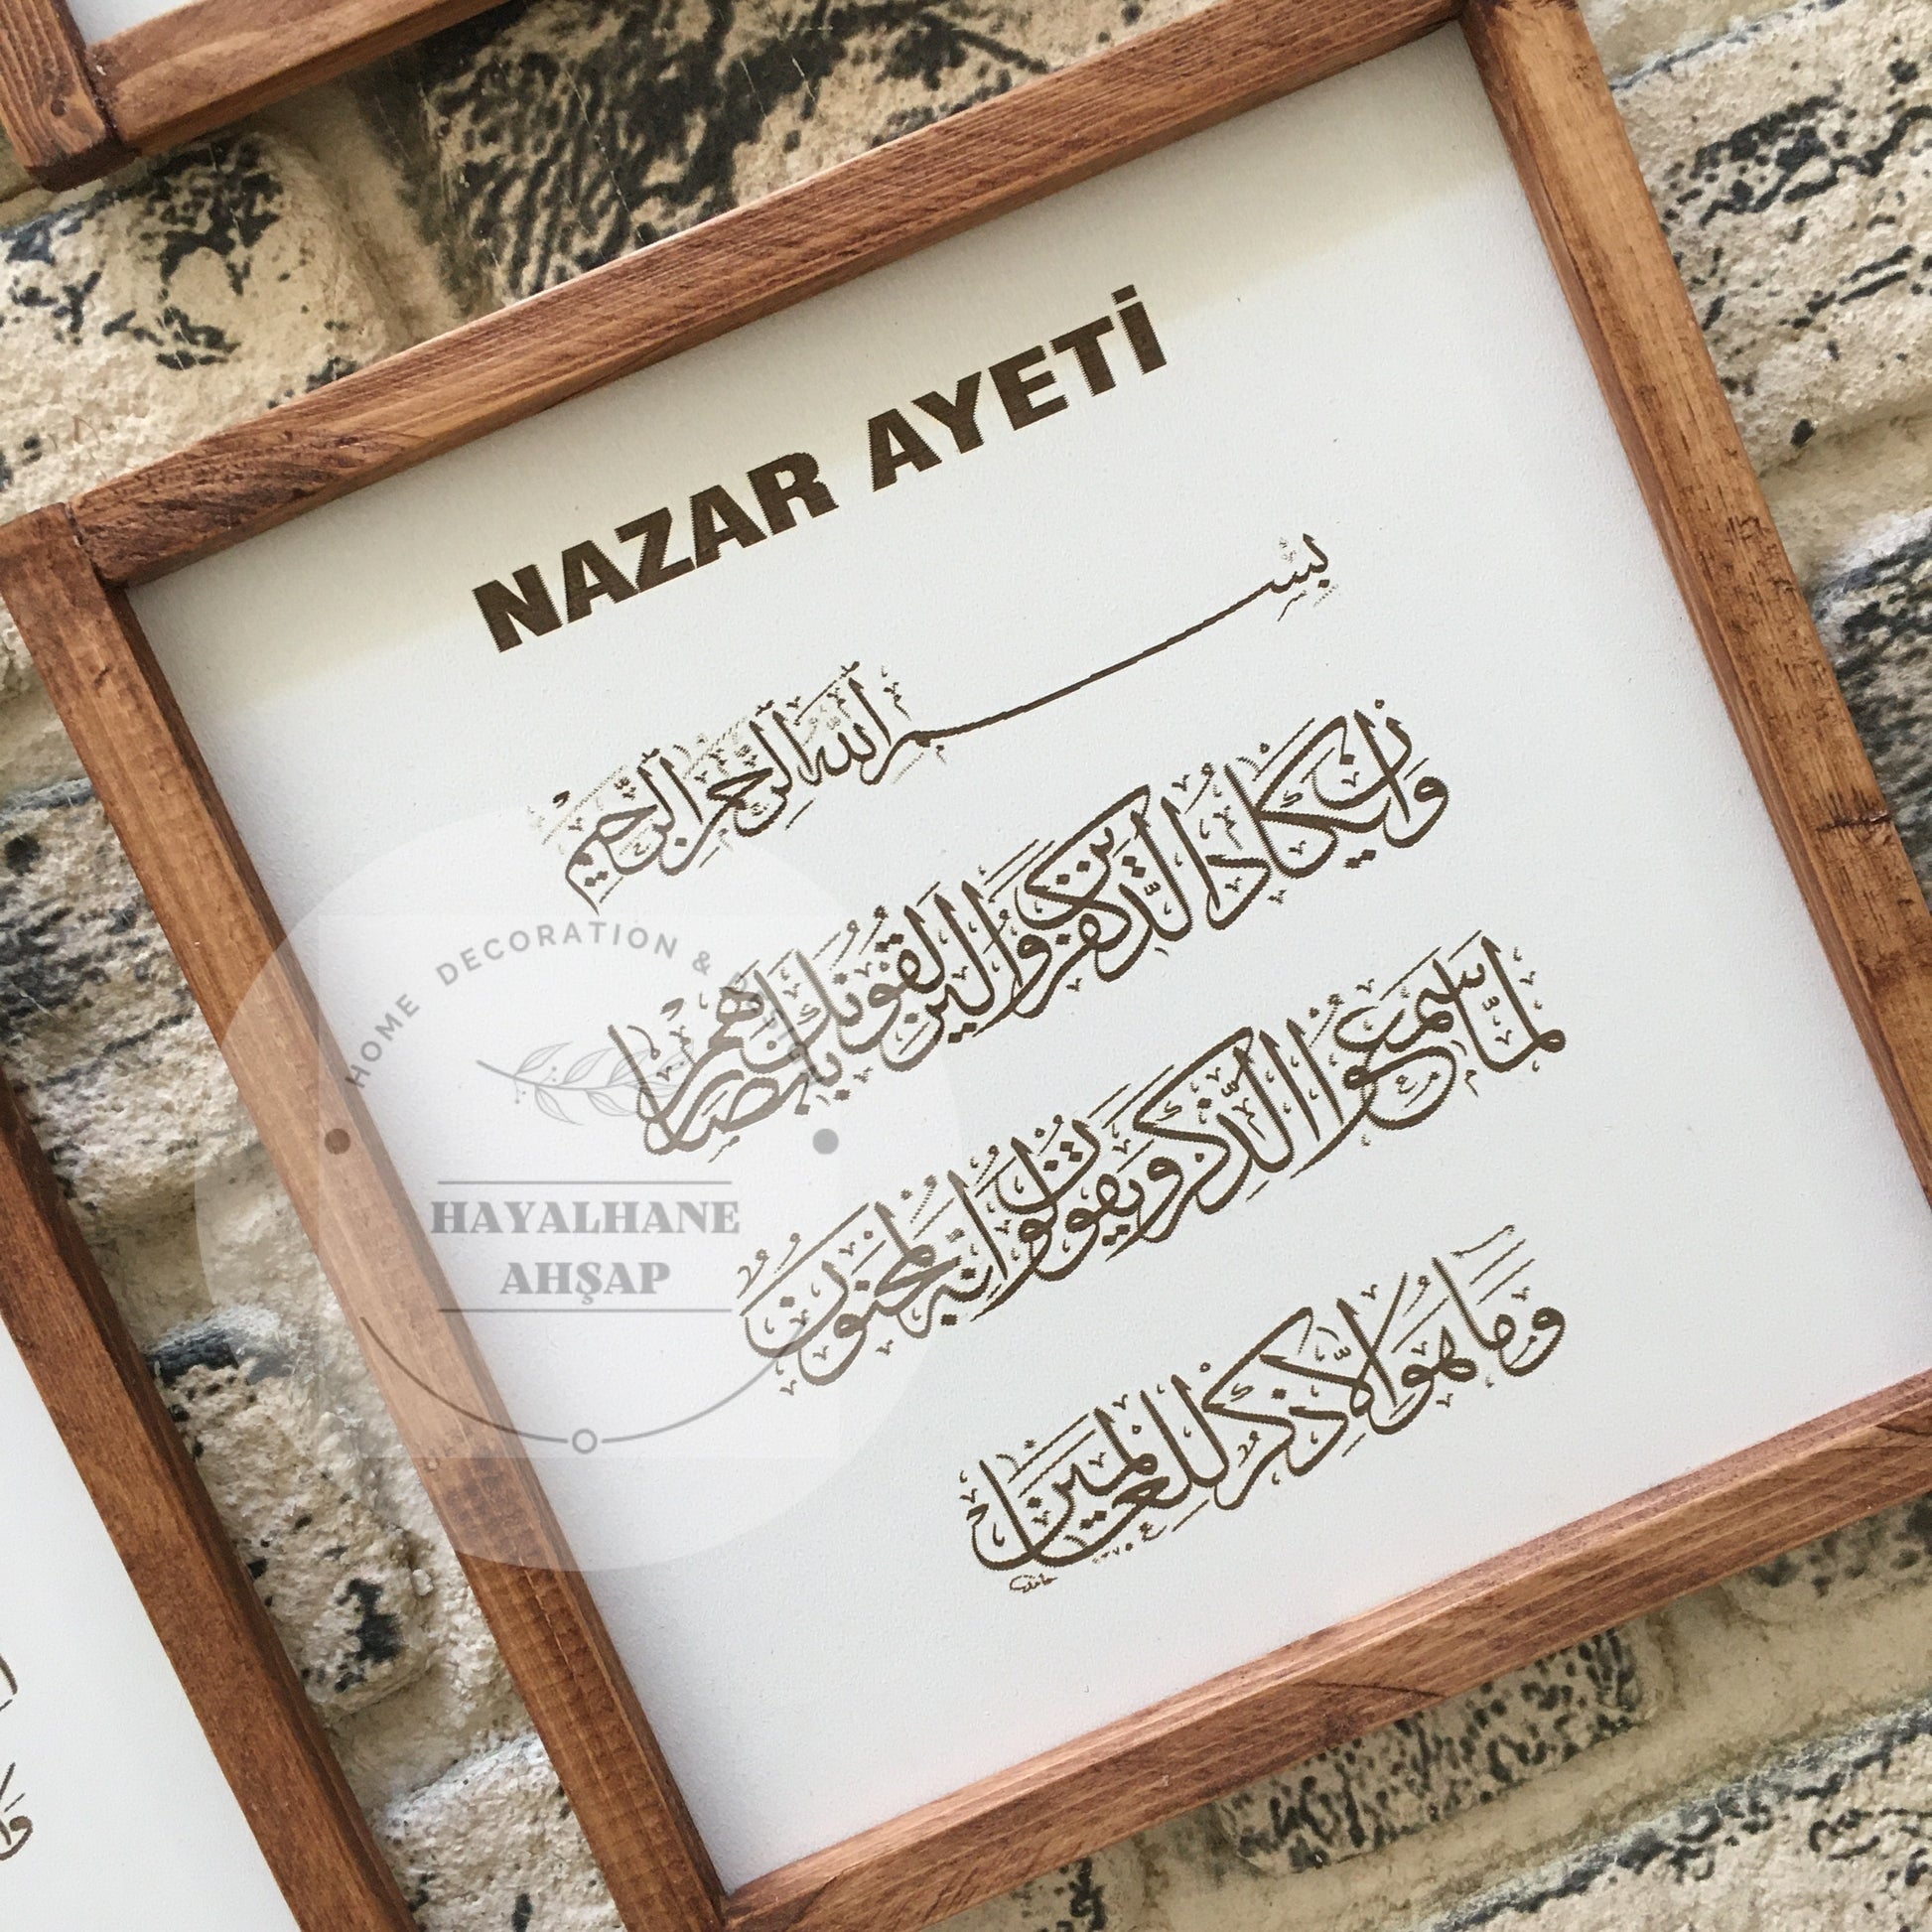 NAZAR AYETİ
بِسْمِ اللّٰهِ الرَّحْمٰنِ الرَّحِيمِ
وَاِنْ يَكَادُ الَّذِينَ كَفَرُوا لَيُزْلِقُونَكَ بِاَبْصَارِهِمْ
لَمَّا سَمِعُوا الذِّكْرَ وَيَقُولُونَ اِنَّهُ لَمَجْنُونٌ
وَمَا هُوَ اِلَّا ذِكْرٌ لِلْعَالَمِينَ
HOME DECORATION &
HAYALHANE
AHŞAP